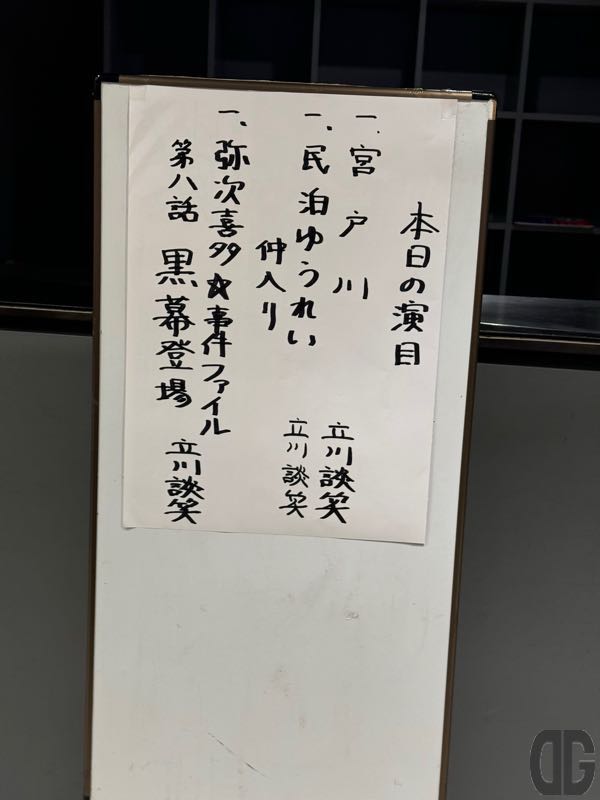 本日の演目
一、宮戸川 立川談笑
一、民泊ゆうれい 立川談笑
仲入り
一、弥次喜多☆事件ファイル
第八話 黒幕登場 立川談笑
DG